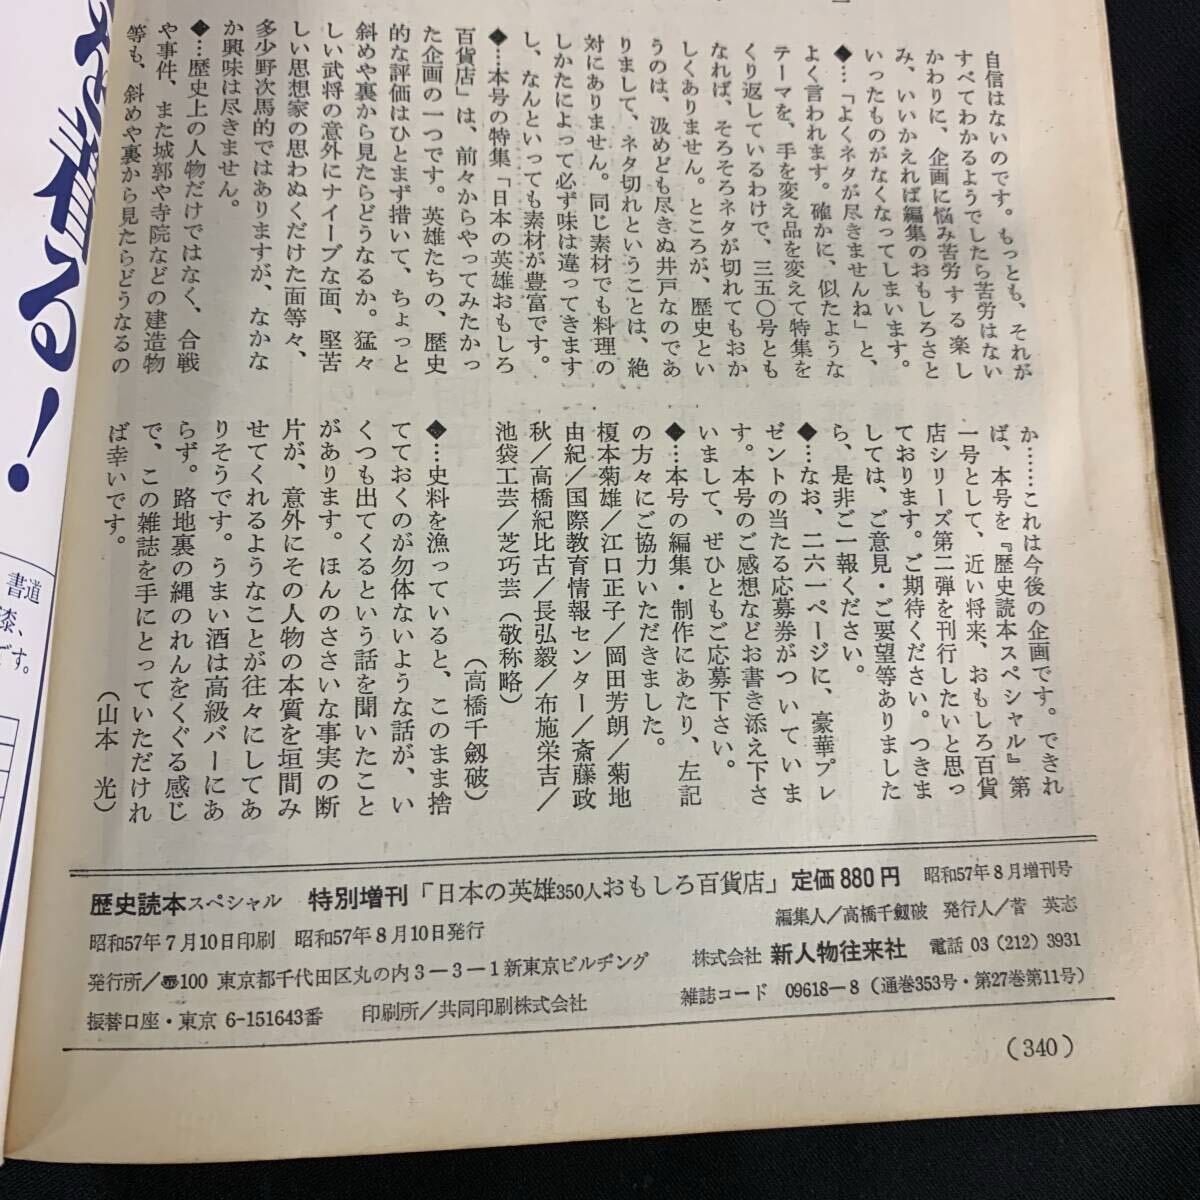 自信はないのです。もっとも、それが
すべてわかるようでしたら苦労はない
かわりに、企画に悩み苦労する楽し
み、いいかえれば編集のおもしろさと
いったものがなくなってしまいます。
◆…「よくネタが尽きませんね」と、
よく言われます。確かに、似たような
テーマを、手を変え品を変えて特集を
くり返しているわけで、三五〇号とも
なれば、そろそろネタが切れてもおか
しくありません。ところが、歴史とい
うのは、汲めども尽きぬ井戸なのであ
りまして、ネタ切れということは、絶
対にありません。同じ素材でも料理の
しかたによって必ず味は違ってきます
し、なんといっても素材が豊富です。
◆…本号の特集「日本の英雄おもしろ
百貨店」は、前々からやってみたかっ
た企画の一つです。英雄たちの、歴史
的な評価はひとまず措いて、ちょっと
斜めや裏から見たらどうなるか。猛々
しい武将の意外にナイーブな面、堅苦
しい思想家の思わぬくだけた面等々、
多少野次馬的ではありますが、なかな
か興味は尽きません。
◆…歴史上の人物だけではなく、合戦
や事件、また城郭や寺院などの建造物
等も、斜めや裏から見たらどうなるの
か……これは今後の企画です。できれ
ば、本号を『歴史読本スペシャル』第
一号として、近い将来、おもしろ百貨
店シリーズ第二弾を刊行したいと思っ
ております。ご期待ください。つきま
しては、ご意見・ご要望等ありました
ら、是非ご一報ください。
◆…なお、二六一ページに、豪華プレ
ゼントの当たる応募券がついていま
す。本号のご感想などお書き添え下さ
いまして、ぜひともご応募下さい。
◆…本号の編集・制作にあたり、左記
の方々にご協力いただきました。
榎本菊雄/江口正子/岡田芳朗/菊地
由紀/国際教育情報センター/斎藤政
秋/高橋紀比古/長弘毅/布施栄吉/
池袋工芸/芝巧芸(敬称略)
(高橋千劔破)
◆…史料を漁っていると、このまま捨
てておくのが勿体ないような話が、い
くつも出てくるという話を聞いたこと
があります。ほんのささいな事実の断
片が、意外にその人物の本質を垣間み
せてくれるようなことが往々にしてあ
りそうです。うまい酒は高級バーにあ
らず。路地裏の縄のれんをくぐる感じ
で、この雑誌を手にとっていただけれ
ば幸いです。
(山本 光)
歴史読本スペシャル 特別増刊「日本の英雄350人おもしろ百貨店」定価880円 昭和57年8月増刊号
昭和57年7月10日印刷 昭和57年8月10日発行 編集人/高橋千劔破 発行人/菅 英志
発行所/〠100 東京都千代田区丸の内3-3-1新東京ビルヂング 株式会社 新人物往来社 電話 03 (212) 3931
振替口座・東京 6-151643番 印刷所/共同印刷株式会社 雑誌コード 09618-8(通巻353号・第27巻第11号)
(340)
る!
書道
漆、
です。